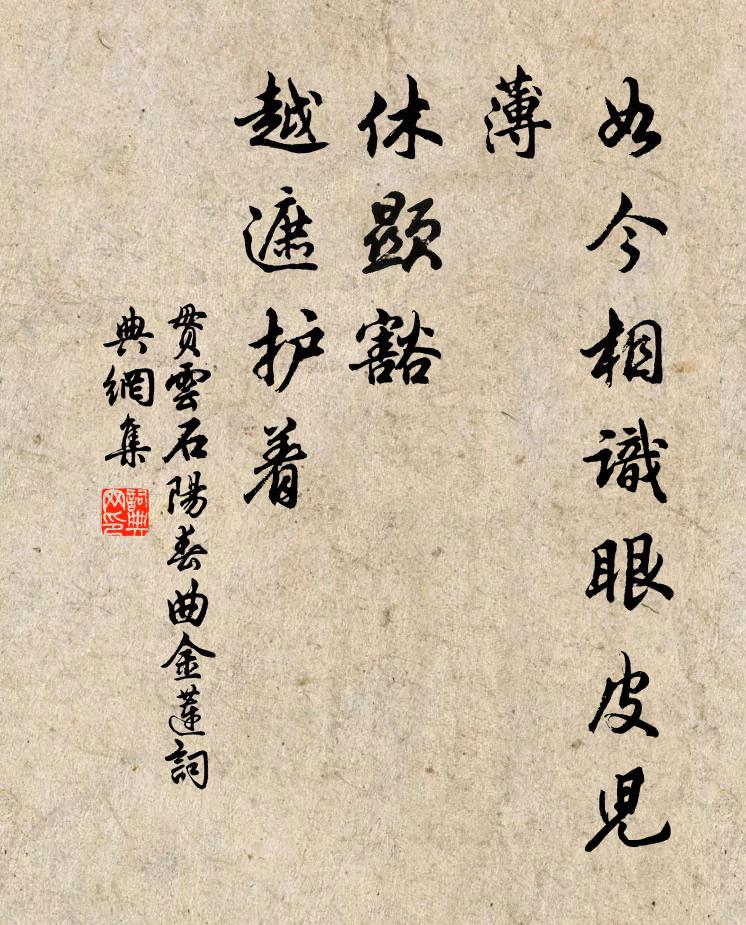 如今相識眼皮児
薄
休顕豁
越遮护着
贯雲石陽春曲金蓮詞
典網集
詞典网印